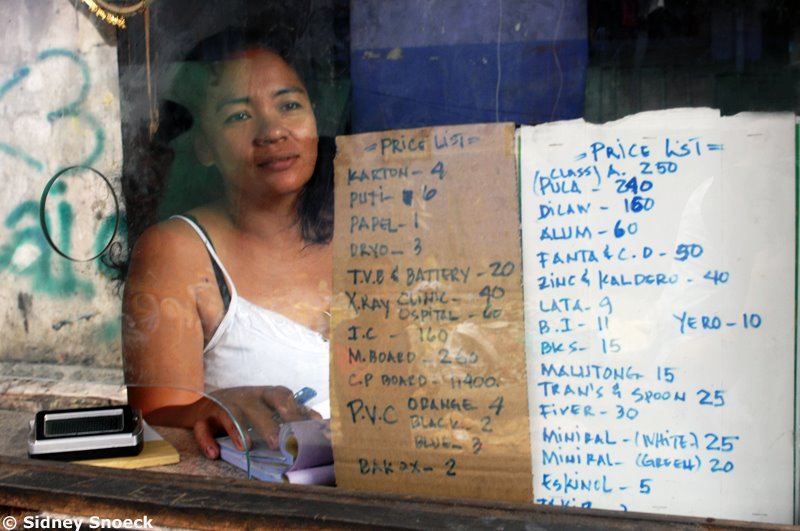 = PRICE LIST =
KARTON - 4
PUTI - 6
PAPEL - 1
DRYO - 3
T.V.B & BATTERY - 20
X.RAY CLINIC - 40
OSPITAL - 60
I.C - 160
M.BOARD - 260
C.P BOARD - 11400.
P.V.C ORANGE 4
BLACK - 2
BLUE - 3
BAKAX - 2
= PRICE LIST =
(CLASS) A. 250
PULA - 240
DILAW - 160
ALUM - 60
FANTA & C.D - 50
ZINC & KALDERO - 40
LATA - 9
B.I - 11 YERO - 10
BKS - 15
MALUTONG 15
TRAN'S & SPOON 25
FIVER - 30
MINIRAL - (WHITE) 25
MINIRAL - (GREEN) 20
ESKINOL - 5
© Sidney Snoeck